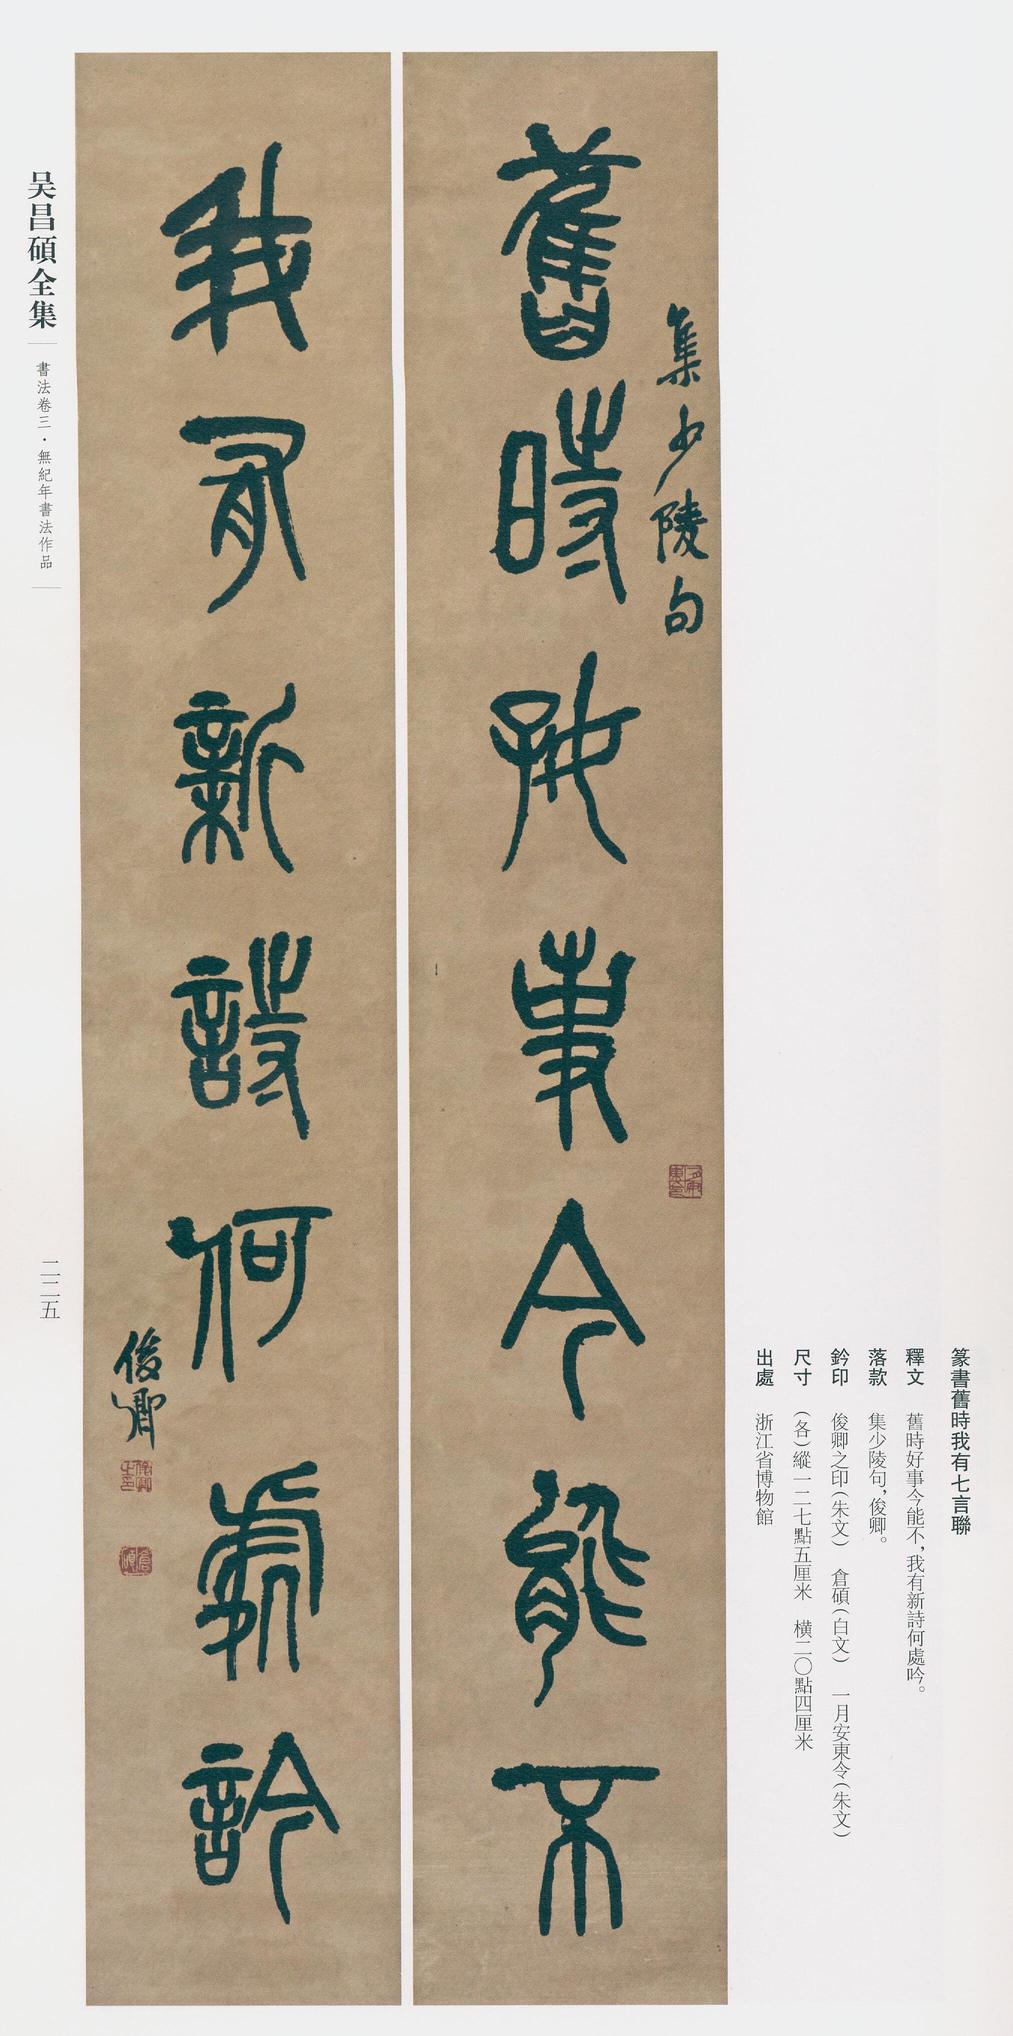 篆書舊時我有七言聯
釋文　舊時好事今能不，我有新詩何處吟。
落款　集少陵句，俊卿。
鈐印　俊卿之印（朱文）　倉碩（白文）　一月安東令（朱文）
尺寸　（各）縱一二七點五厘米　橫二〇點四厘米
出處　浙江省博物館
集少陵句
舊時好事今能不
我有新詩何處訡
俊卿
俊卿之印
倉碩
一月安東令
吴昌碩全集
書法卷三·無紀年書法作品
二二五